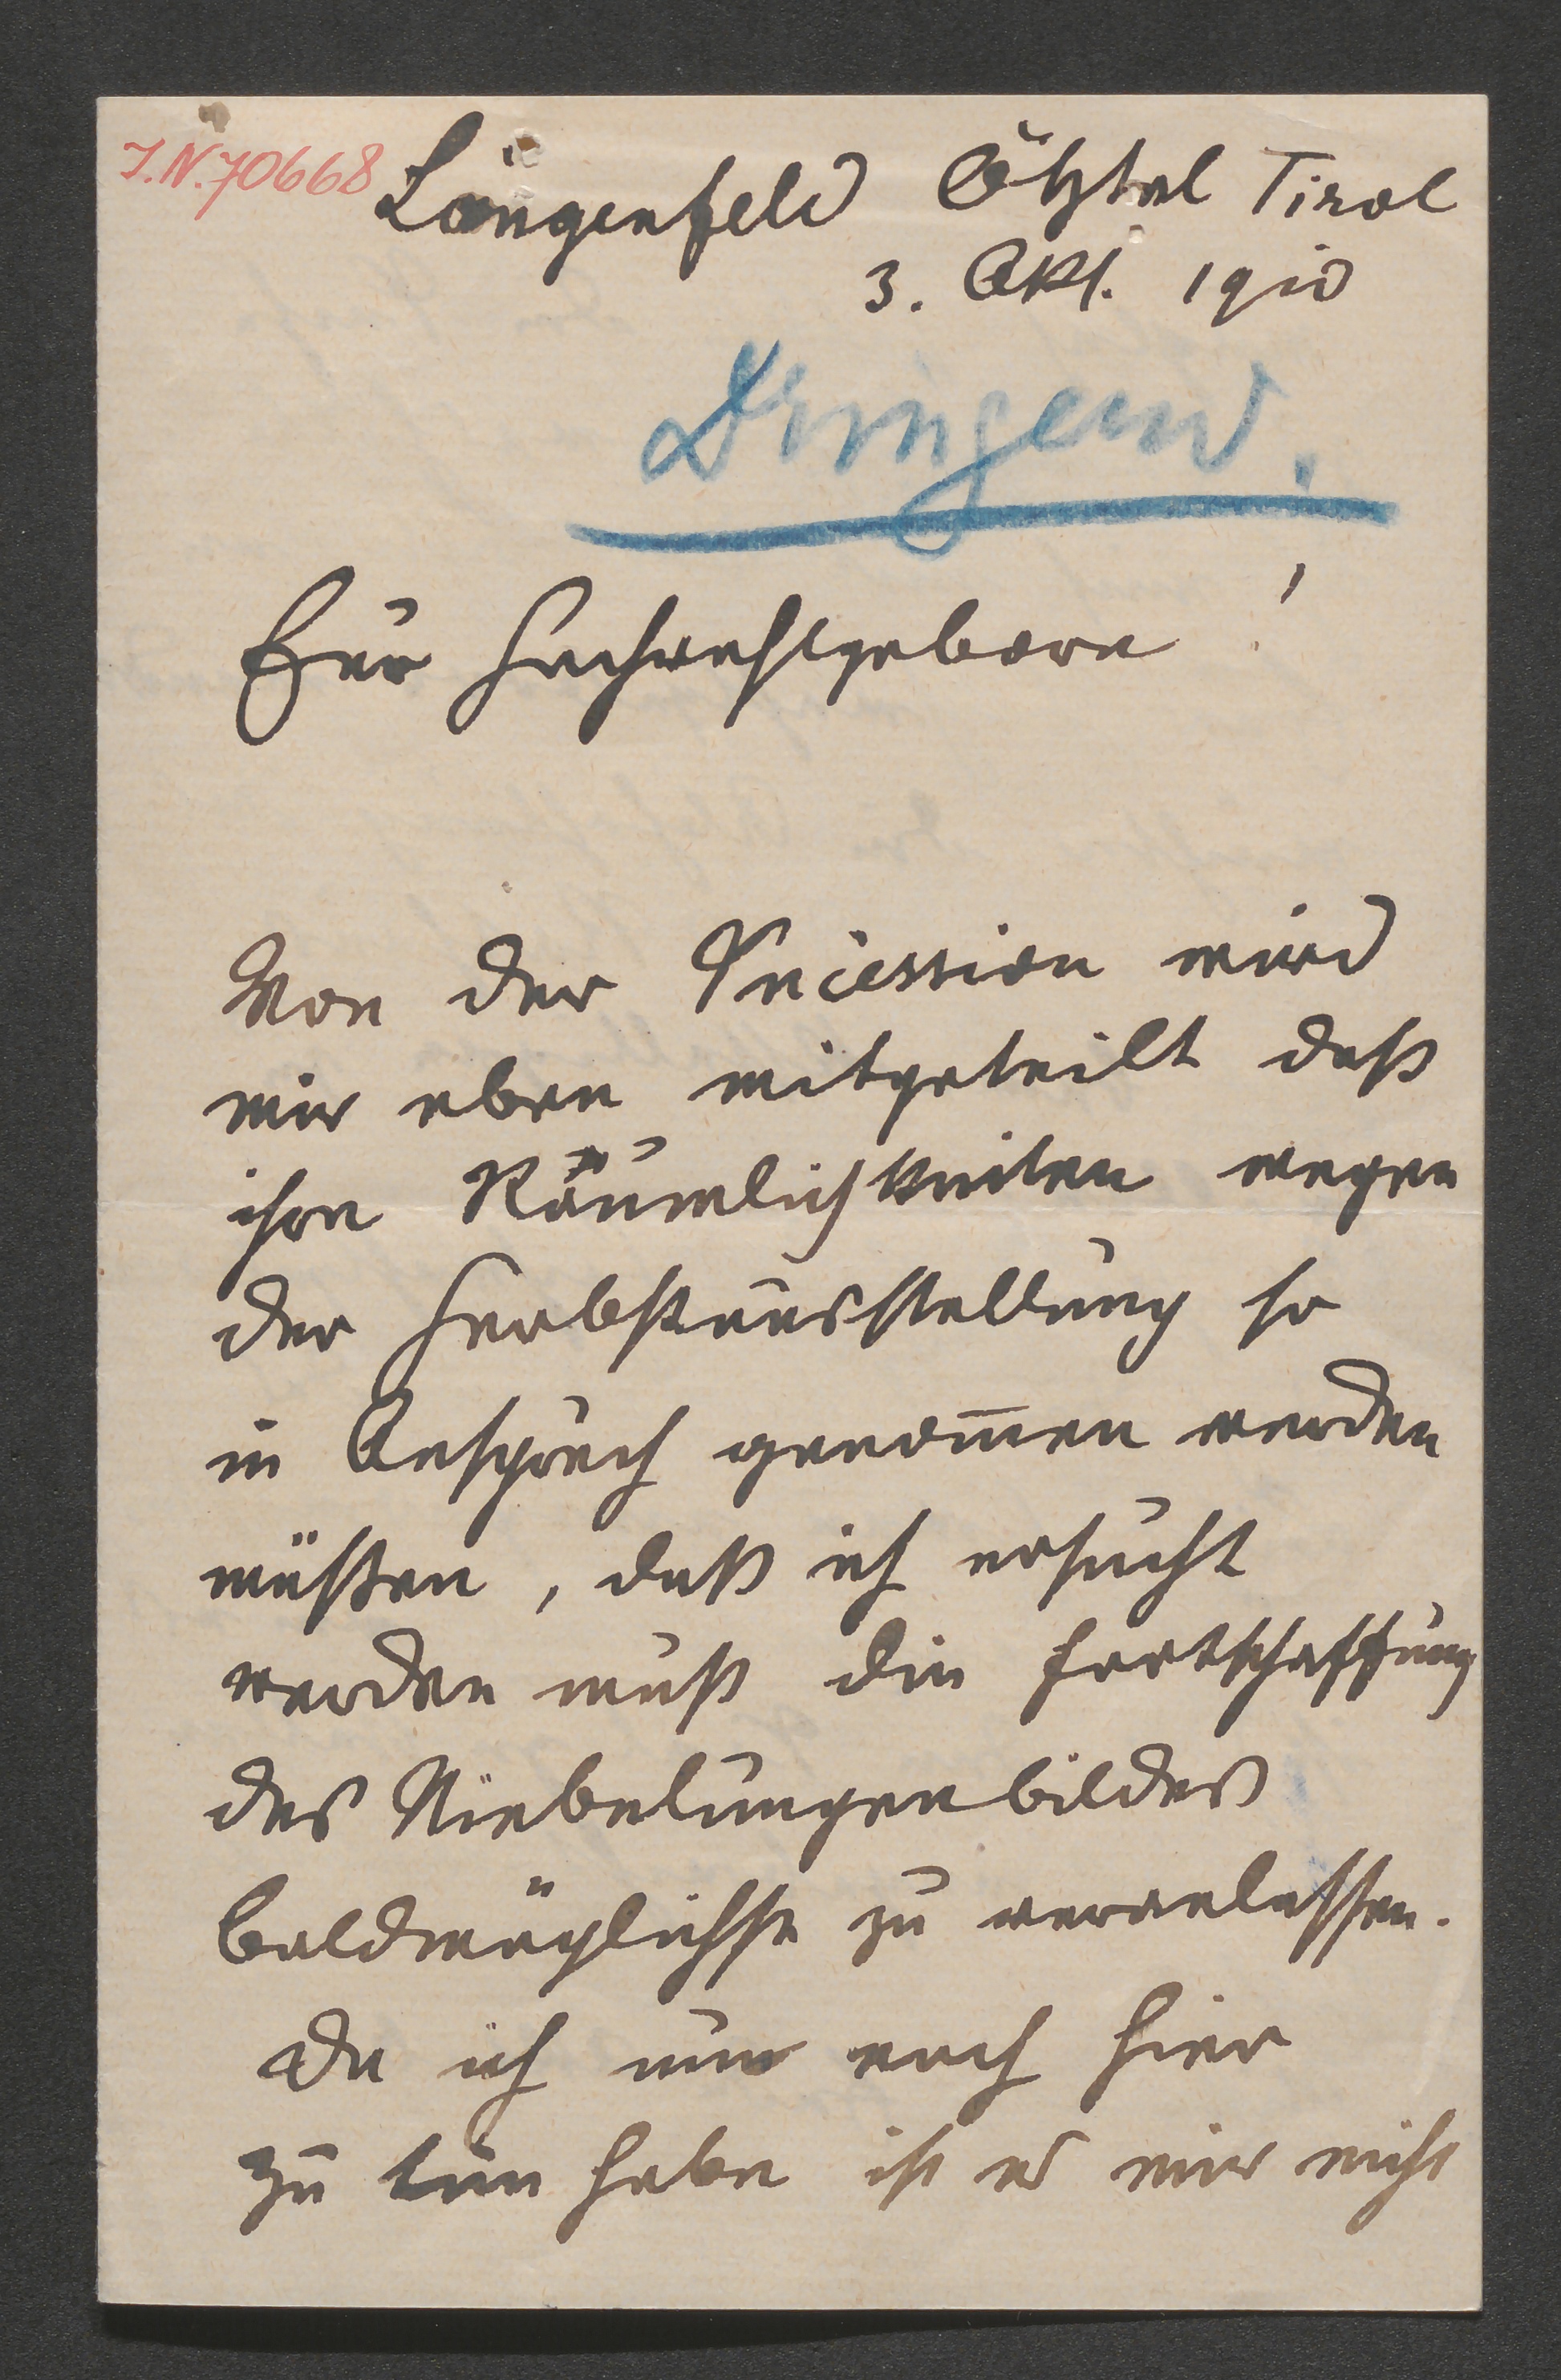 I.N. 70668
Längenfeld Ötztal Tirol
3. Okt. 1910
Dringend.
Euer Hochwohlgeboren!
Von der Secession wird
mir eben mitgeteilt daß
ihre Räumlichkeiten wegen
der Herbstausstellung so
in Anspruch genom̅en werden
müßten, daß ich ersucht
werden muß die Fortschaffung
des Niebelungenbildes
baldmöglichst zu veranlassen.
Da ich nun noch hier
zu tun habe ist es mir nicht